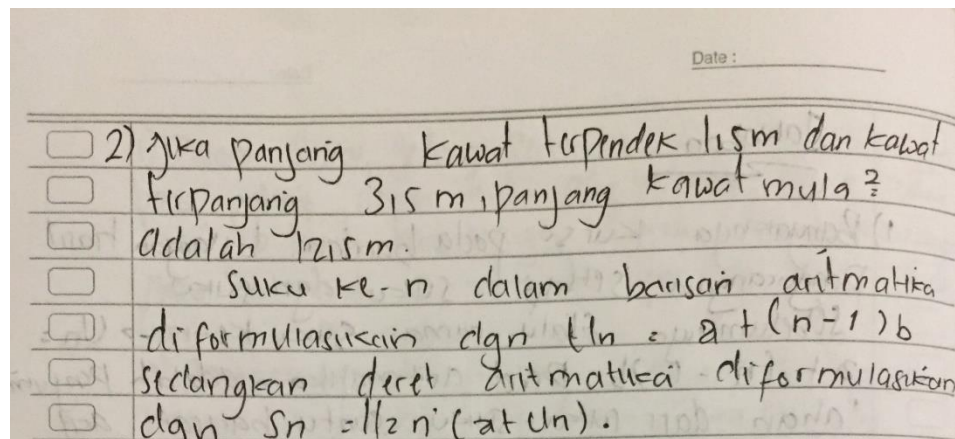 Date :
2) Jika panjang kawat terpendek 1,5m dan kawat
terpanjang 3,5 m, panjang kawat mula²
adalah 12,5m.
suku ke-n dalam barisan aritmatika
diformulasikan dgn Un = a + (n-1)b
sedangkan deret aritmatika diformulasikan
dgn Sn = 1/2 n (a+Un).